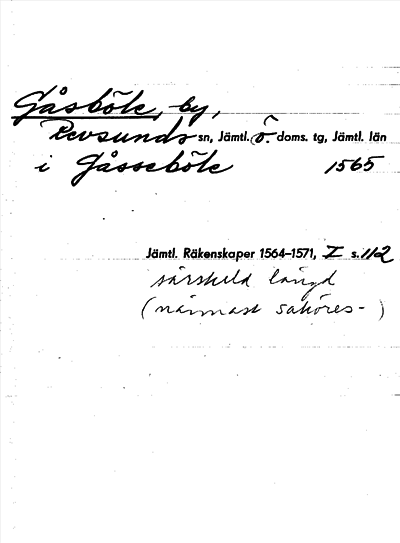 Gåsböle, by,
Revsunds sn, Jämtl. Ö. doms. tg, Jämtl. län
i Gåsseböle 1565
Jämtl. Räkenskaper 1564–1571, I s. 112
särskild längd
(närmast saköres- )